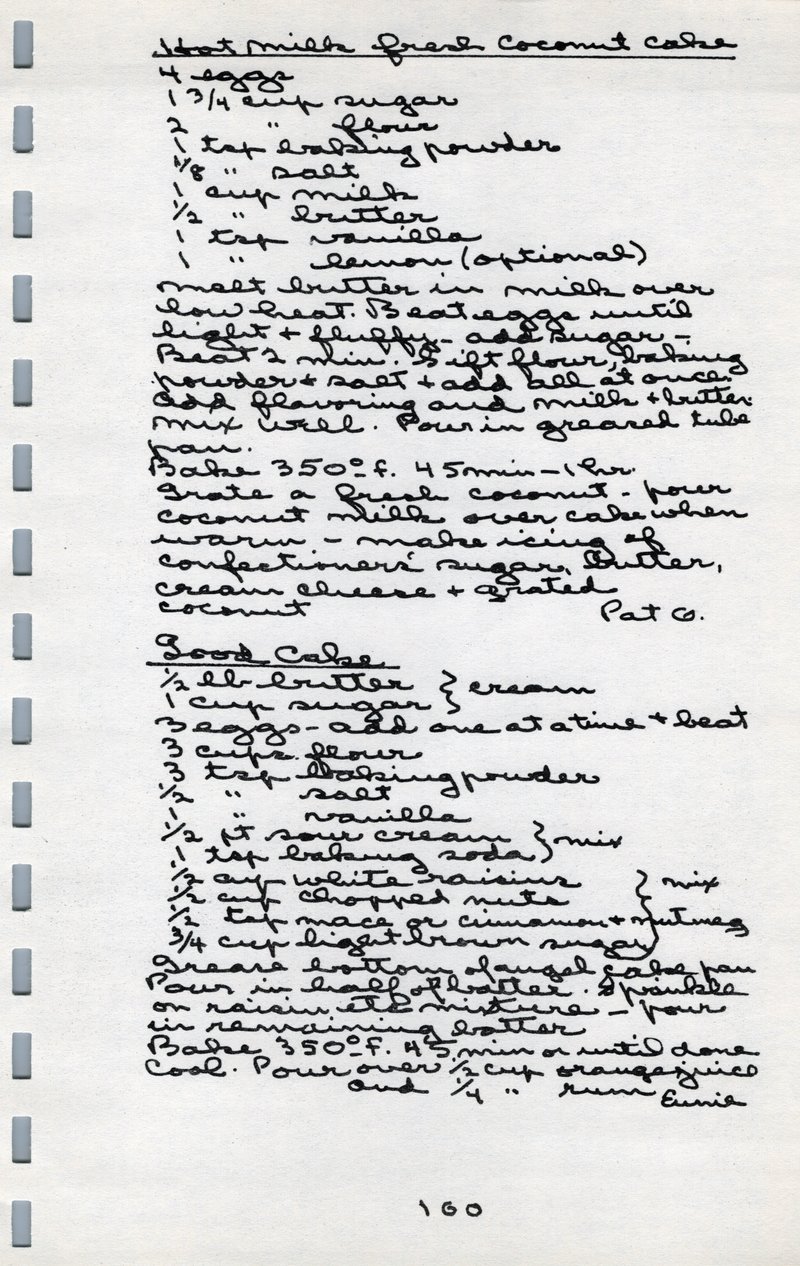 Hot milk fresh coconut cake
4 eggs
1 3/4 cup sugar
2 " flour
1 tsp baking powder
1/8 " salt
1 cup milk
1/2 " butter
1 tsp vanilla
1 " lemon (optional)
Melt butter in milk over
low heat. Beat eggs until
light + fluffy - add sugar -
Beat 2 min. Sift flour, baking
powder + salt + add all at once.
Add flavoring and milk + butter.
Mix well. Pour in greased tube
pan.
Bake 350° f. 45 min - 1 hr.
Grate a fresh coconut - pour
coconut milk over cake when
warm - make icing of
confectioners' sugar, butter,
cream cheese + grated
coconut Pat G.
Good Cake
1/2 lb butter } cream
1 cup sugar }
3 eggs - add one at a time + beat
3 cups flour
3 tsp baking powder
1/2 " salt
1 " vanilla
1/2 pt sour cream } mix
1 tsp baking soda }
1/2 cup white raisins } mix
1/2 cup chopped nuts
1/2 tsp mace or cinnamon + nutmeg
3/4 cup light brown sugar }
Grease bottom of angel cake pan
Pour in half of batter. Sprinkle
on raisin, etc mixture - pour
in remaining batter
Bake 350° f. 45 min or until done
Cool. Pour over 1/2 cup orange juice
and 1/4 " rum Eunie
160